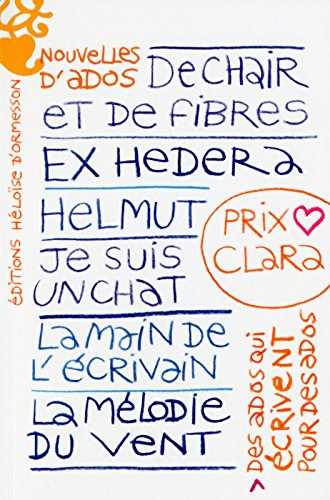 NOUVELLES
D'ADOS
DE CHAIR
ET DE FIBRES
EX HEDERA
HELMUT
JE SUIS
UN CHAT
LA MAIN DE
L'ÉCRIVAIN
LA MÉLODIE
DU VENT
PRIX
CLARA
DES ADOS QUI
ÉCRIVENT
POUR DES ADOS
ÉDITIONS HÉLOÏSE D'ORMESSON